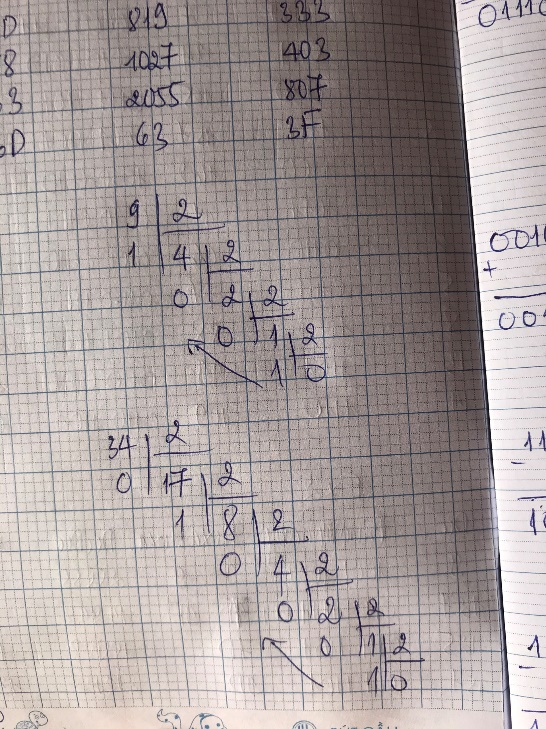 D 819 333
8 1027 403
3 2055 807
D 63 3F
9 2
1 4 2
0 2 2
0 1 2
1 0
34 2
0 17 2
1 8 2
0 4 2
0 2 2
0 1 2
1 0
01110
001
+
00
11
-
1
1
-
1